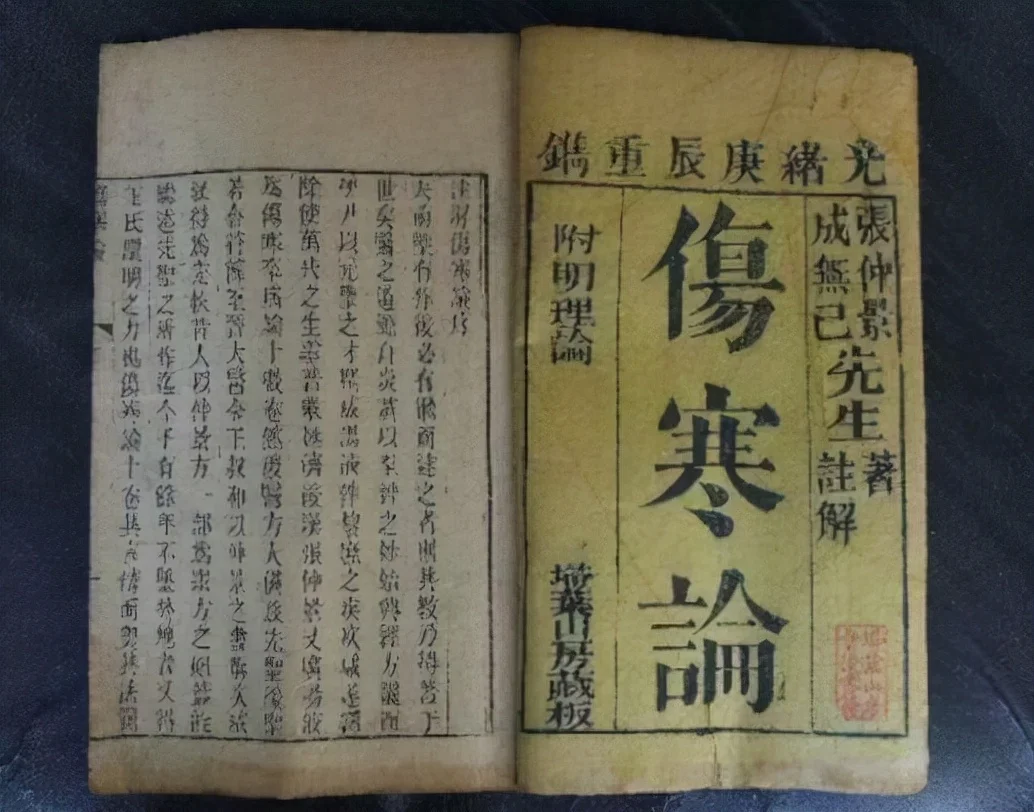 光緒庚辰重鐫
張仲景先生著
成無己先生註解
傷寒論
附明理論
埽葉山房藏板
註解傷寒論序
夫前聖有作後必有繼而述之者則其教乃得著于
世矣醫之道源自炎黃以至神之妙始興經方繼而
伊尹以元聖之才撰成湯液俾黎庶之疾疢咸遂蠲
除使萬代之生靈普蒙拯濟後漢張仲景又廣湯液
為傷寒卒病論十數卷然後醫方大備茲先聖後聖
若合符節至晉太醫令王叔和以仲景之書撰次成
敘得為完帙昔人以仲景方一部為眾方之祖蓋能
繼述先聖之所作迄今千有餘年不墜於地者又得
王氏闡明之力也傷寒論十卷其言精而奧其法簡